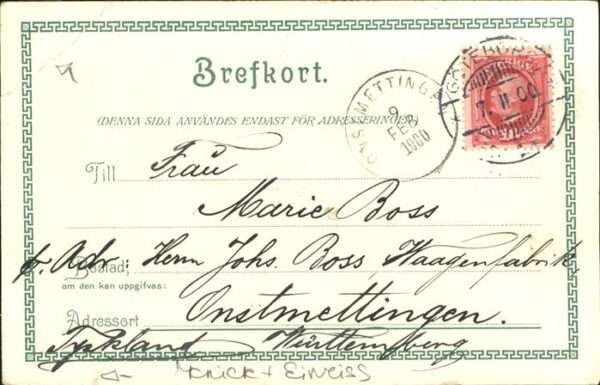 Brefkort.
(DENNA SIDA ANVÄNDES ENDAST FÖR ADRESSERINGEN)
ONSTMETTINGEN
9
FEB
1900
GÖTEBORG
7 II 00
Till Frau
Marie Boss
p. Adr: Herrn Johs. Boss, Waagenfabrik
Bostad,
om den kan uppgifvas:
Onstmettingen.
Adressort
Tyskland Württemberg
Knick + Einriss